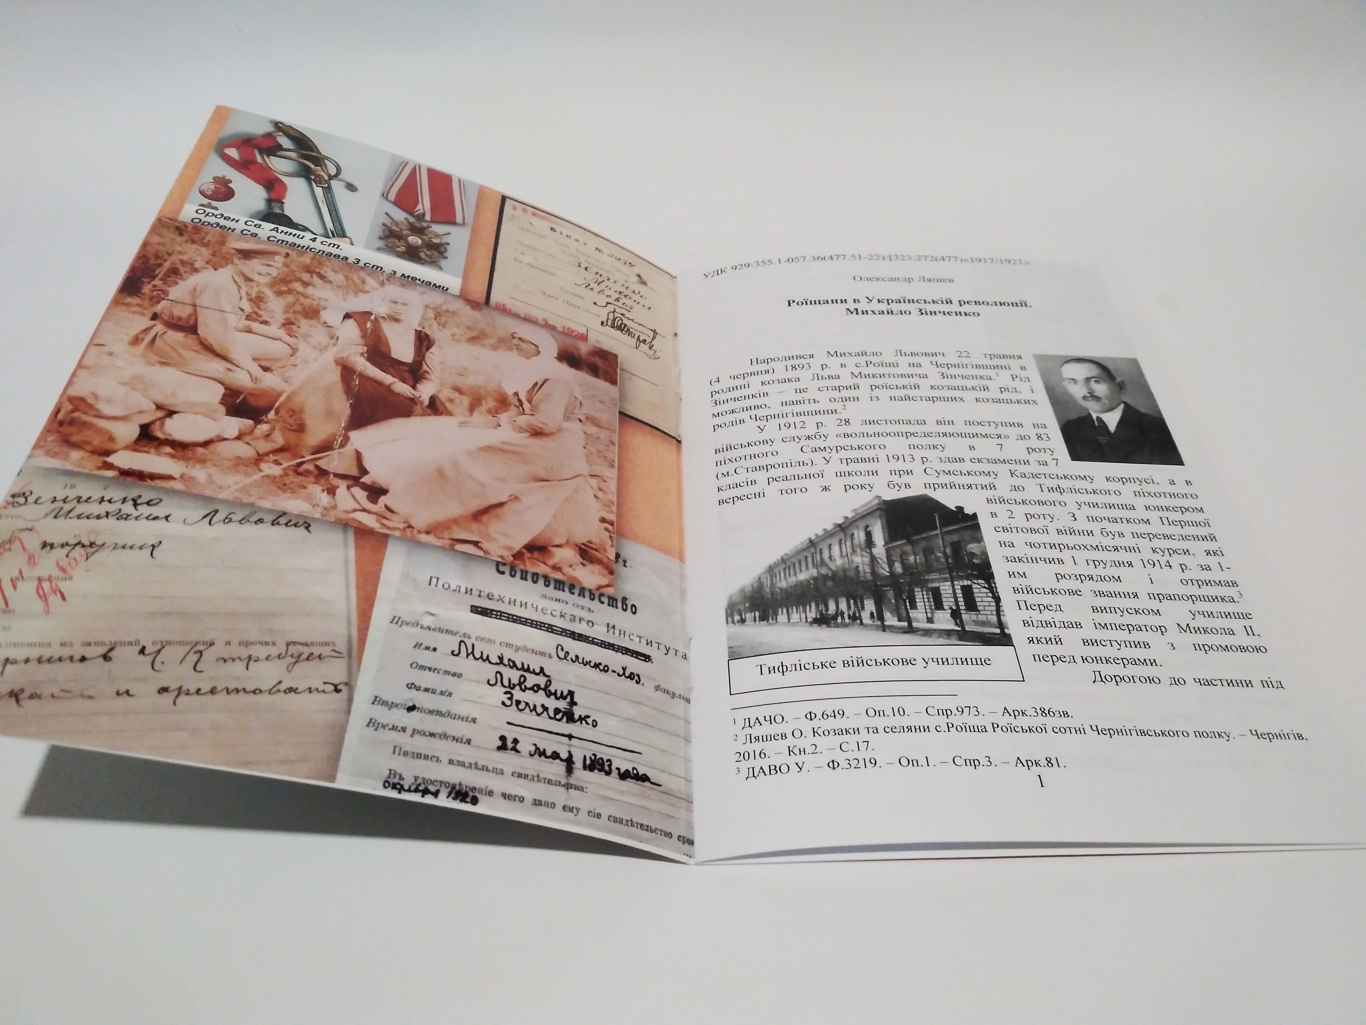 Орден Св. Анни 4 ст.
Орден Св. Станіслава 3 ст. з мечами
Білет №
Зенченко
Михаил
Львович
Зенченко
Михаил Львович
поручик
арестовать
Свидѣтельство
дано отъ
Политехническаго Института
Предъявитель сего студентъ Сельско-Хоз.
Имя Михаил
Отчество Львович
Фамилія Зенченко
Вѣроисповѣданія
Время рожденія 22 мая 1893 года
Подпись владѣльца свидѣтельства:
Въ удостовѣреніе чего дано ему сіе свидѣтельство
октября 1920
УДК 929:355.1-057.36(477.51-22):[323.272(477)«1917/1921»
Олександр Ляшев
Роїщани в Українській революції.
Михайло Зінченко
Народився Михайло Львович 22 травня
(4 червня) 1893 р. в с.Роїщі на Чернігівщині в
родині козака Льва Микитовича Зінченка.¹ Рід
Зінченків – це старий роїський козацький рід, і
можливо, навіть один із найстарших козацьких
родів Чернігівщини.²
У 1912 р. 28 листопада він поступив на
військову службу «вольноопределяющимся» до 83
піхотного Самурського полку в 7 роту
(м.Ставропіль). У травні 1913 р. здав екзамени за 7
класів реальної школи при Сумському Кадетському корпусі, а в
вересні того ж року був прийнятий до Тифліського піхотного
військового училища юнкером
в 2 роту. З початком Першої
світової війни був переведений
на чотирьохмісячні курси, які
закінчив 1 грудня 1914 р. за 1-
им розрядом і отримав
військове звання прапорщика.³
Перед випуском училище
відвідав імператор Микола ІІ,
який виступив з промовою
перед юнкерами.
Тифліське військове училище
Дорогою до частини під
¹ ДАЧО. – Ф.649. – Оп.10. – Спр.973. – Арк.386зв.
² Ляшев О. Козаки та селяни с.Роїща Роїської сотні Чернігівського полку. – Чернігів,
2016. – Кн.2. – С.17.
³ ДАВО У. – Ф.3219. – Оп.1. – Спр.3. – Арк.81.
1